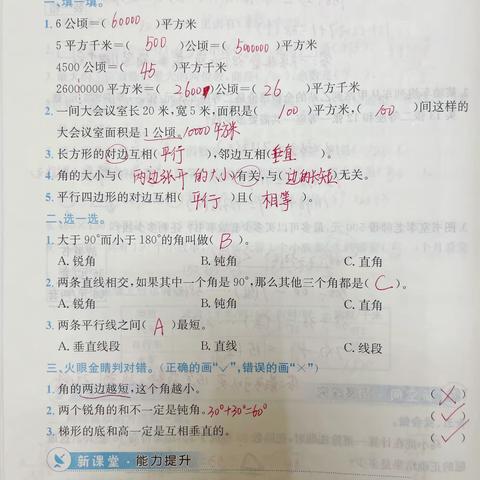 一、填一填。
1. 6公顷=( 60000 )平方米
5平方千米=( 500 )公顷=( 5000000 )平方米
4500公顷=( 45 )平方千米
26000000平方米=( 2600 )公顷=( 26 )平方千米
2. 一间大会议室长20米,宽5米,面积是( 100 )平方米,( 100 )间这样的
大会议室面积是1公顷。10000平方米
3. 长方形的对边互相( 平行 ),邻边互相( 垂直 )。
4. 角的大小与( 两边张开的大小 )有关,与( 边的长短 )无关。
5. 平行四边形的对边互相( 平行 )且( 相等 )。
二、选一选。
1. 大于90°而小于180°的角叫做( B )。
A. 锐角 B. 钝角 C. 直角
2. 两条直线相交,如果其中一个角是90°,那么其他三个角都是( C )。
A. 锐角 B. 钝角 C. 直角
3. 两条平行线之间( A )最短。
A. 垂直线段 B. 直线 C. 线段
三、火眼金睛判对错。(正确的画“✓”,错误的画“×”)
1. 角的两边越短,这个角越小。 ( × )
2. 两个锐角的和不一定是钝角。30°+30°=60° ( ✓ )
3. 梯形的底和高一定是互相垂直的。 ( ✓ )
新课堂·能力提升